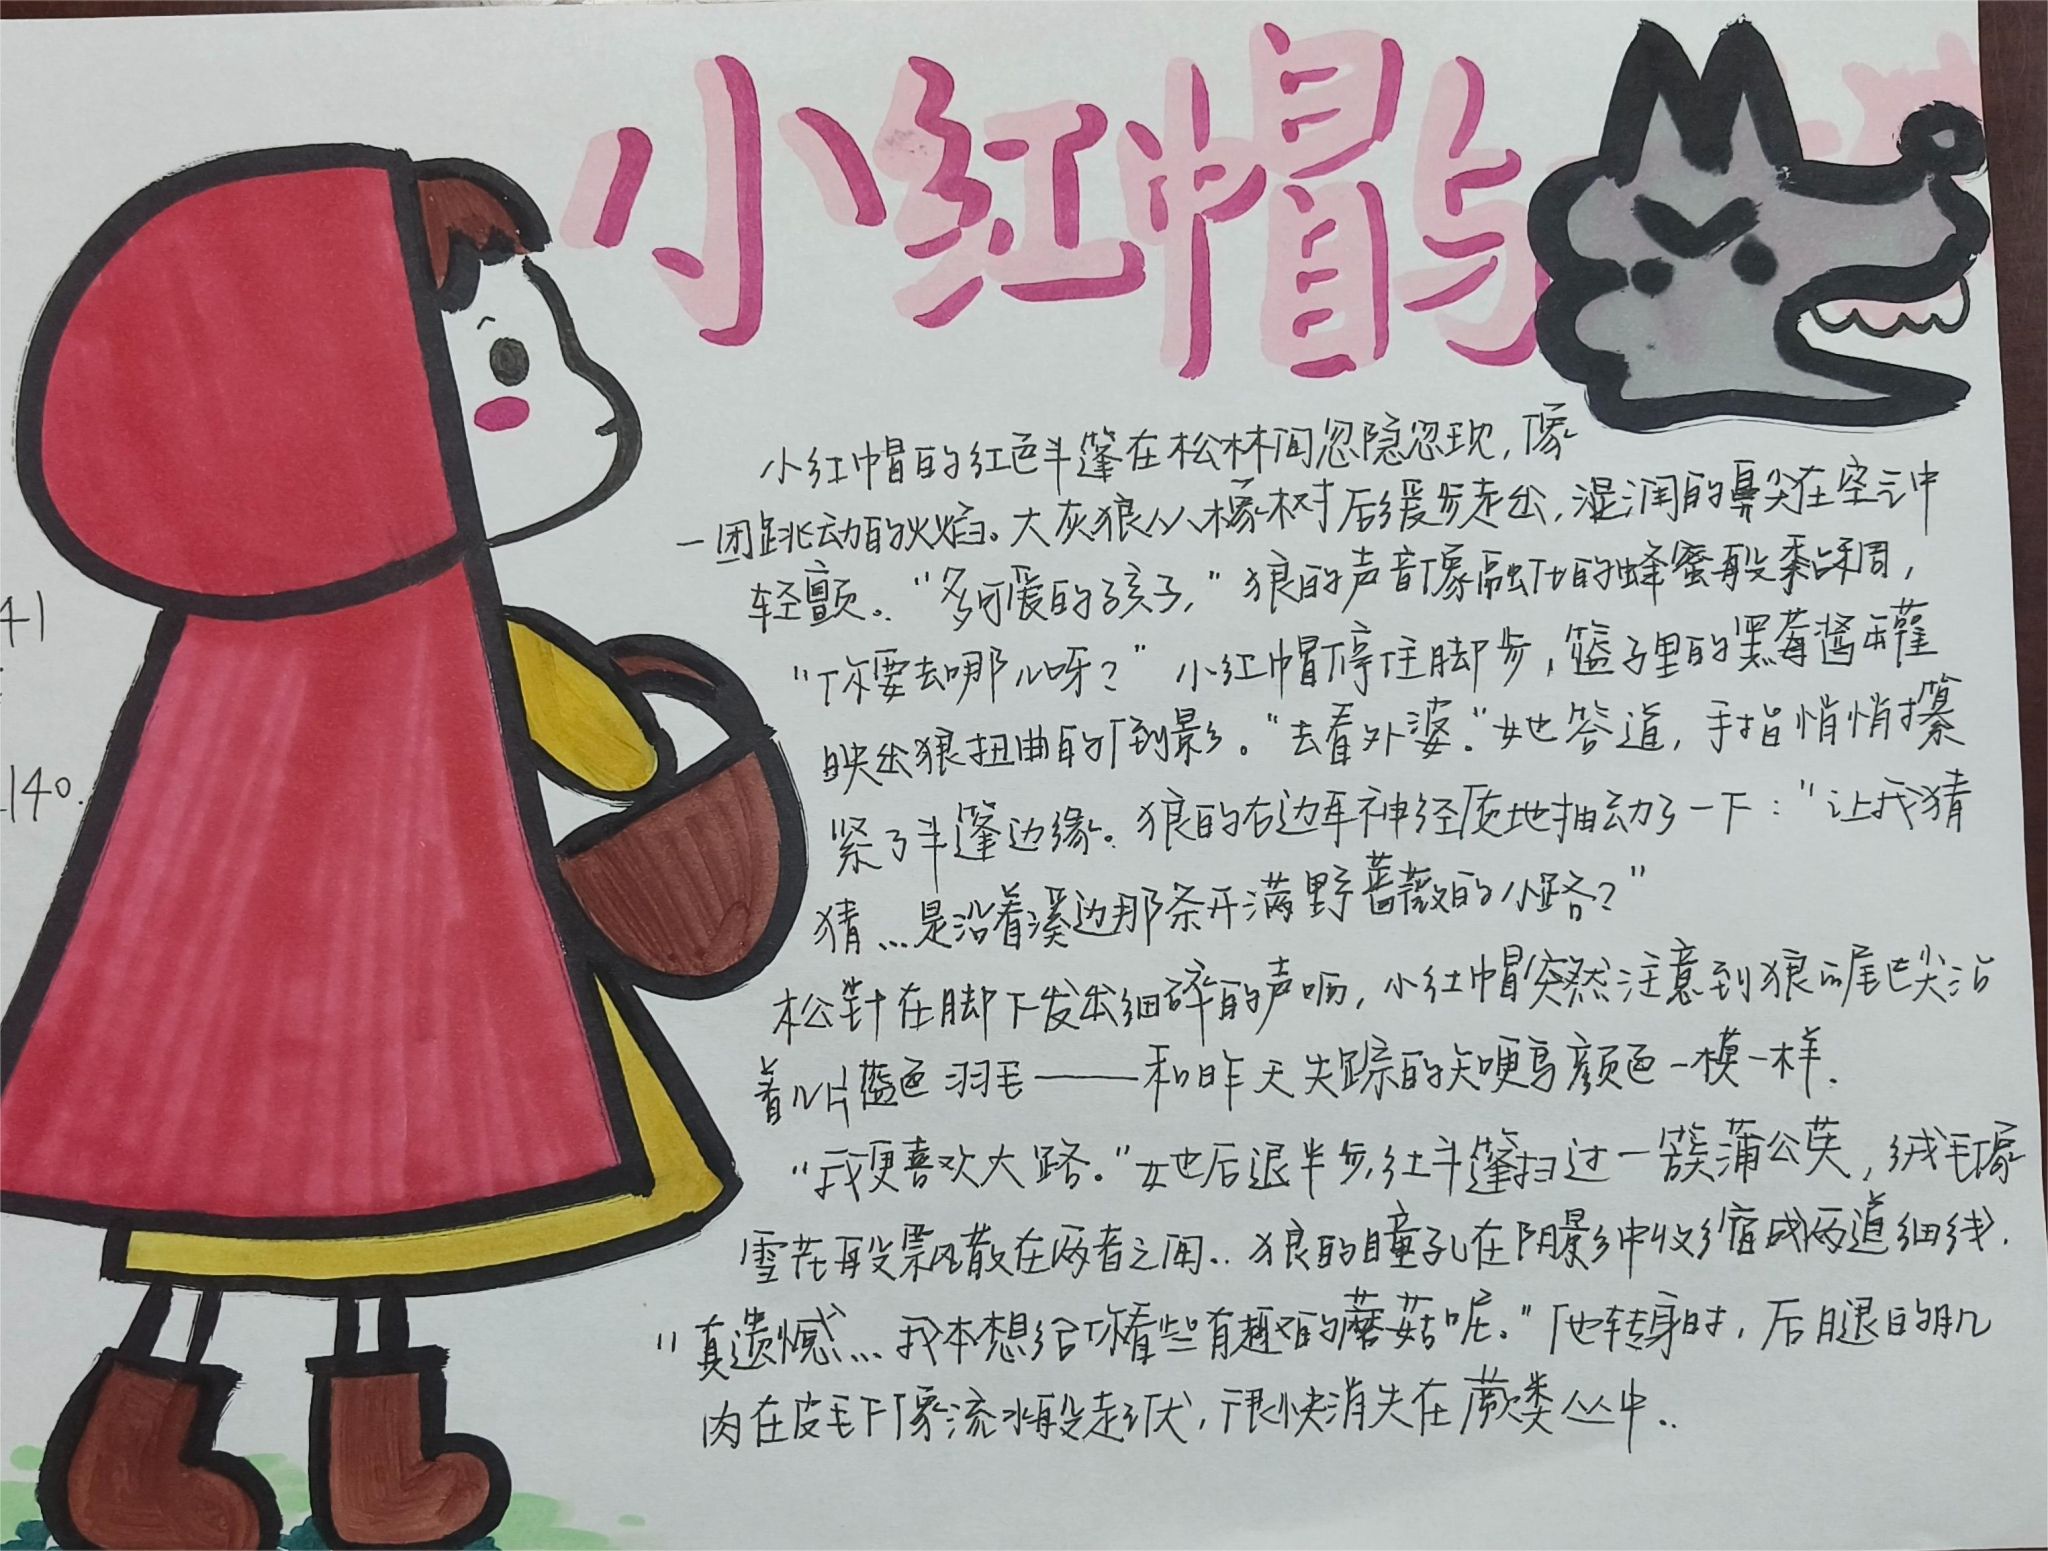 小红帽与
小红帽的红色斗篷在松林间忽隐忽现，像
一团跳动的火焰。大灰狼从橡树后缓步走出，湿润的鼻尖在空气中
轻颤。“多可爱的孩子，”狼的声音像融化的蜂蜜般黏稠，
“你要去哪儿呀？”小红帽停住脚步，篮子里的黑莓酱罐
映出狼扭曲的倒影。“去看外婆。”她答道，手指悄悄攥
紧了斗篷边缘。狼的右边耳神经质地抽动了一下：“让我猜
猜...是沿着溪边那条开满野蔷薇的小路？”
松针在脚下发出细碎的声响，小红帽突然注意到狼的尾巴尖沾
着几片蓝色羽毛——和昨天失踪的知更鸟颜色一模一样.
“我更喜欢大路。”她后退半步，红斗篷扫过一簇蒲公英，绒毛像
雪花般飘散在两者之间..狼的瞳孔在阴影中收缩成两道细线.
“真遗憾...我本想给你看些有趣的蘑菇呢。”他转身时，后腿的肌
肉在皮毛下像流水般起伏，很快消失在蕨类丛中..
41
140.